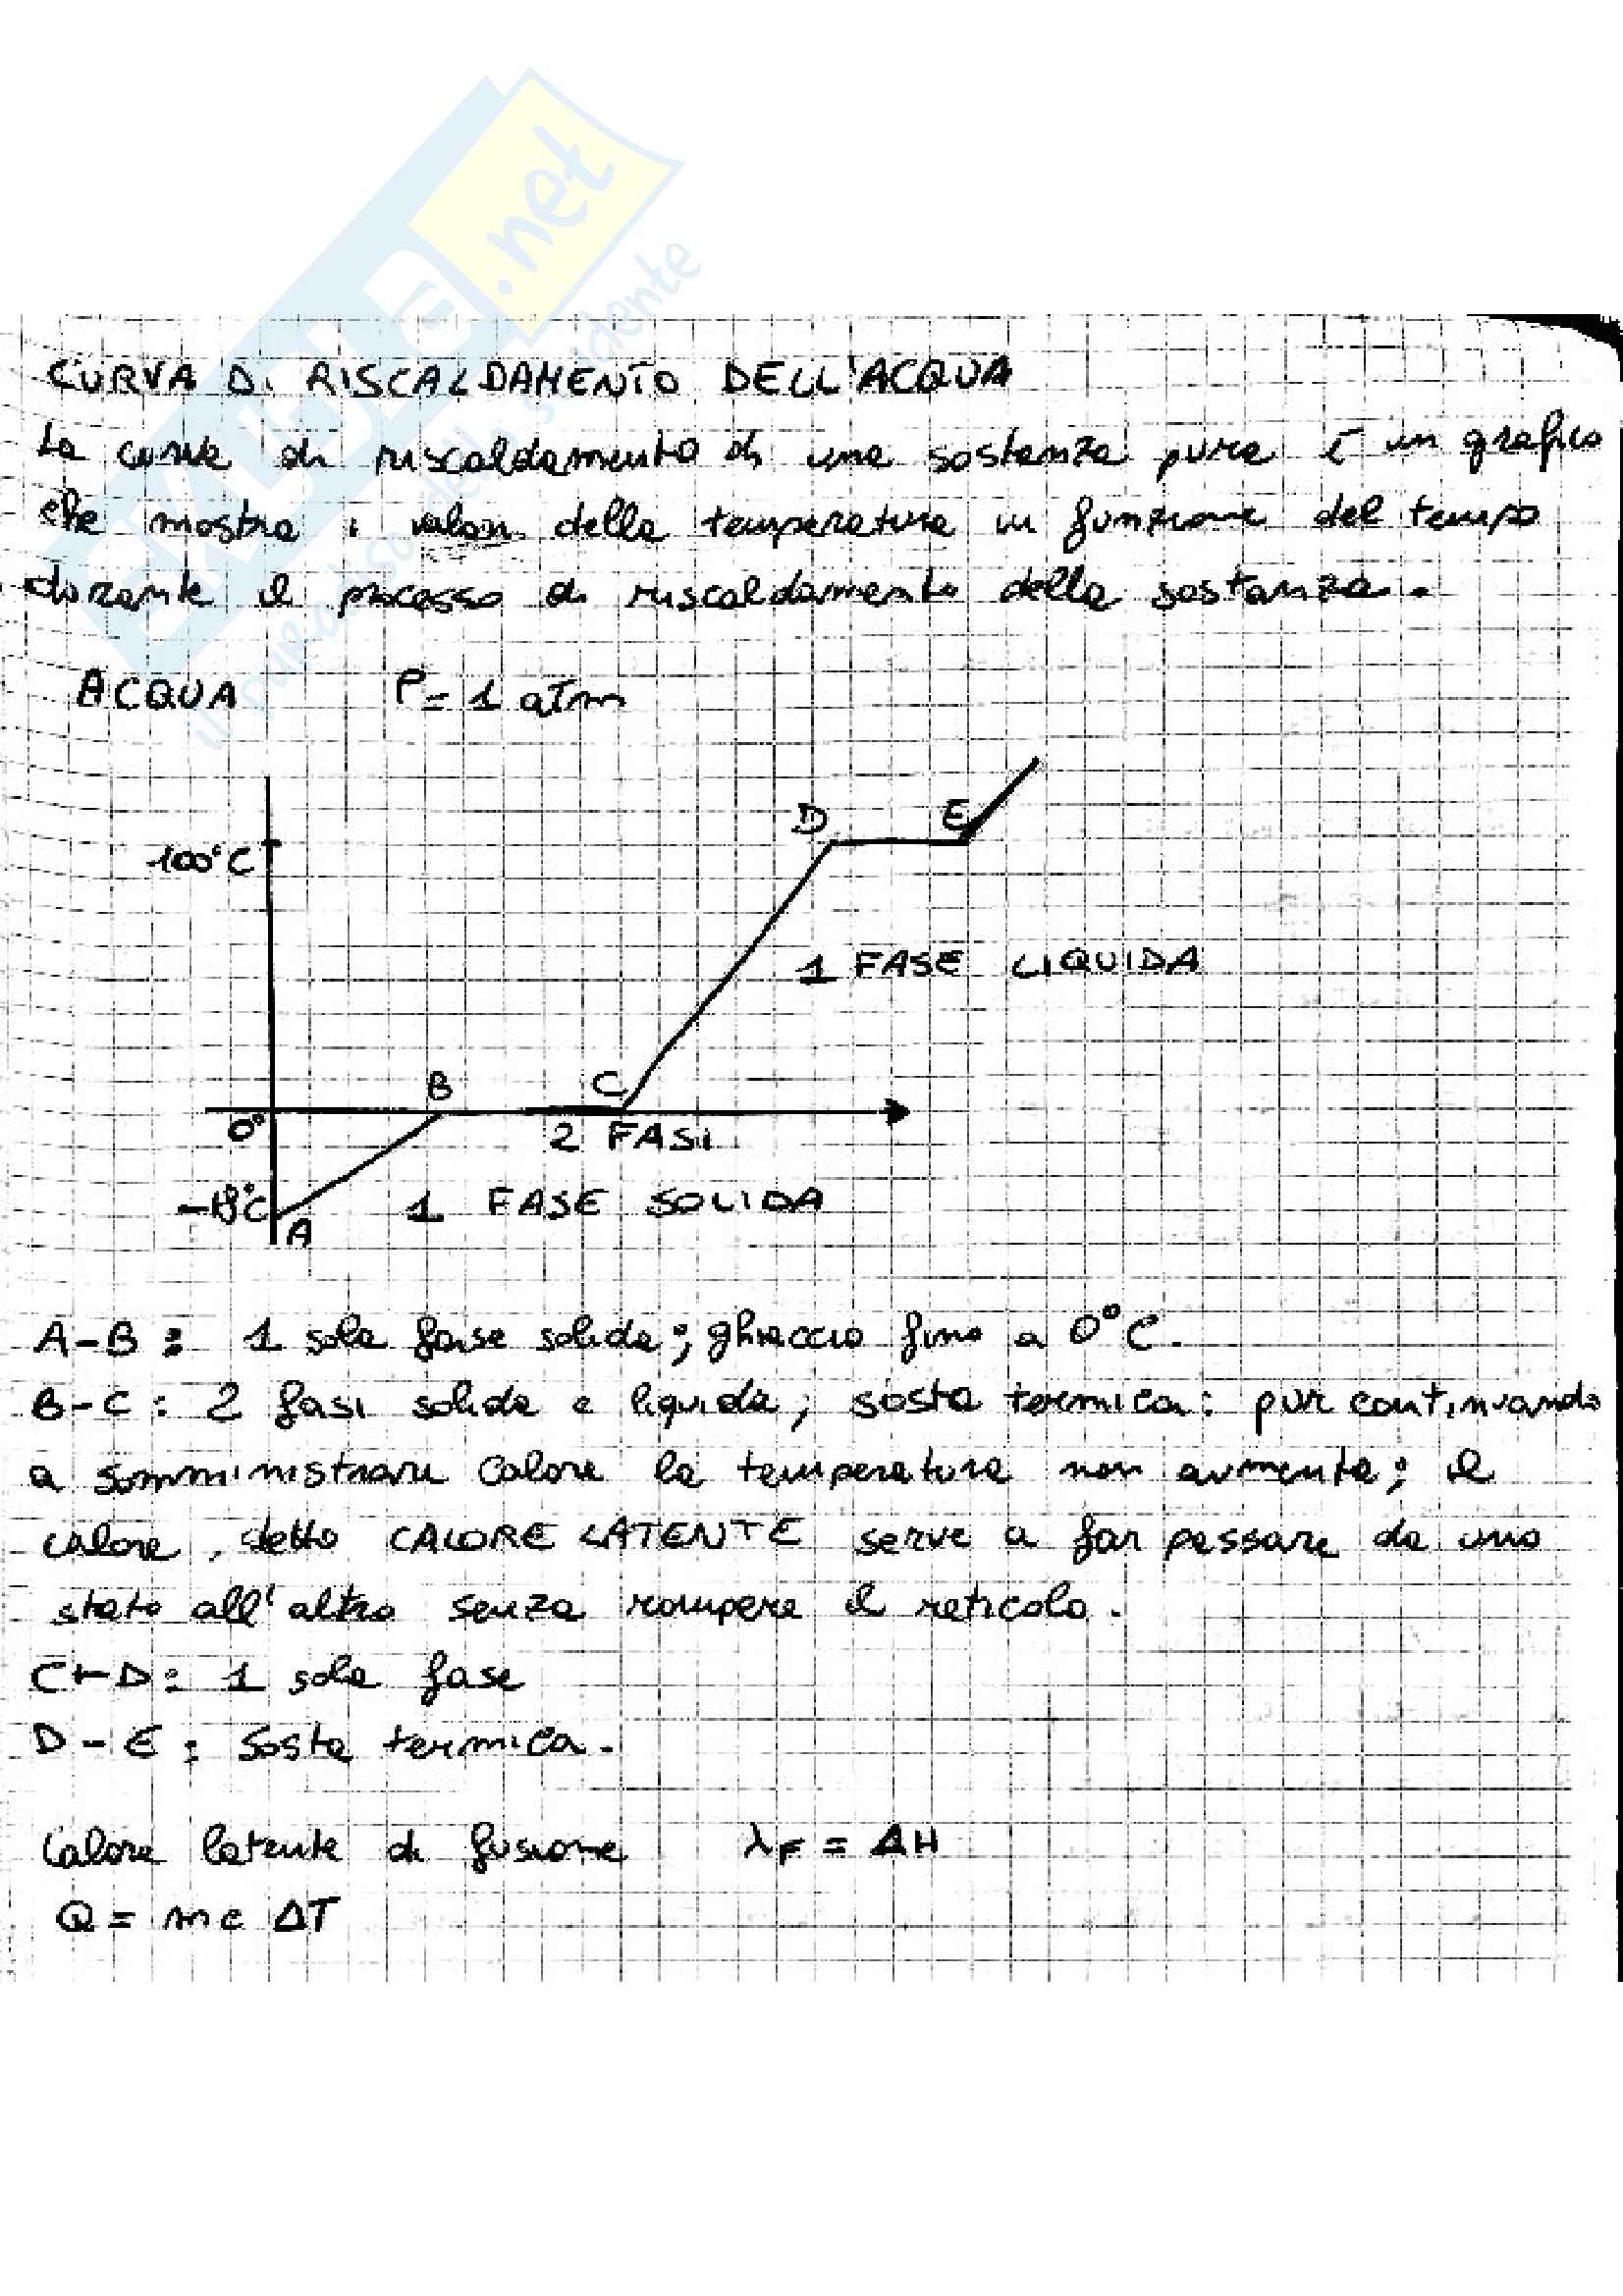 SKUOLA.net
il paradiso dello studente
CURVA DI RISCALDAMENTO DELL'ACQUA
La curva di riscaldamento di una sostanza pura è un grafico
che mostra i valori della temperatura in funzione del tempo
durante il processo di riscaldamento della sostanza.
ACQUA P = 1 atm
D E
100°C
1 FASE LIQUIDA
B C
0°
2 FASI
1 FASE SOLIDA
A
A-B : 1 sola fase solida; ghiaccio fino a 0°C.
B-C : 2 fasi solida e liquida; sosta termica: pur continuando
a somministrare calore la temperatura non aumenta; il
calore, detto CALORE LATENTE serve a far passare da uno
stato all'altro senza rompere il reticolo.
C-D : 1 sola fase
D-E : Sosta termica.
Calore latente di fusione λF = ΔH
Q = mc ΔT